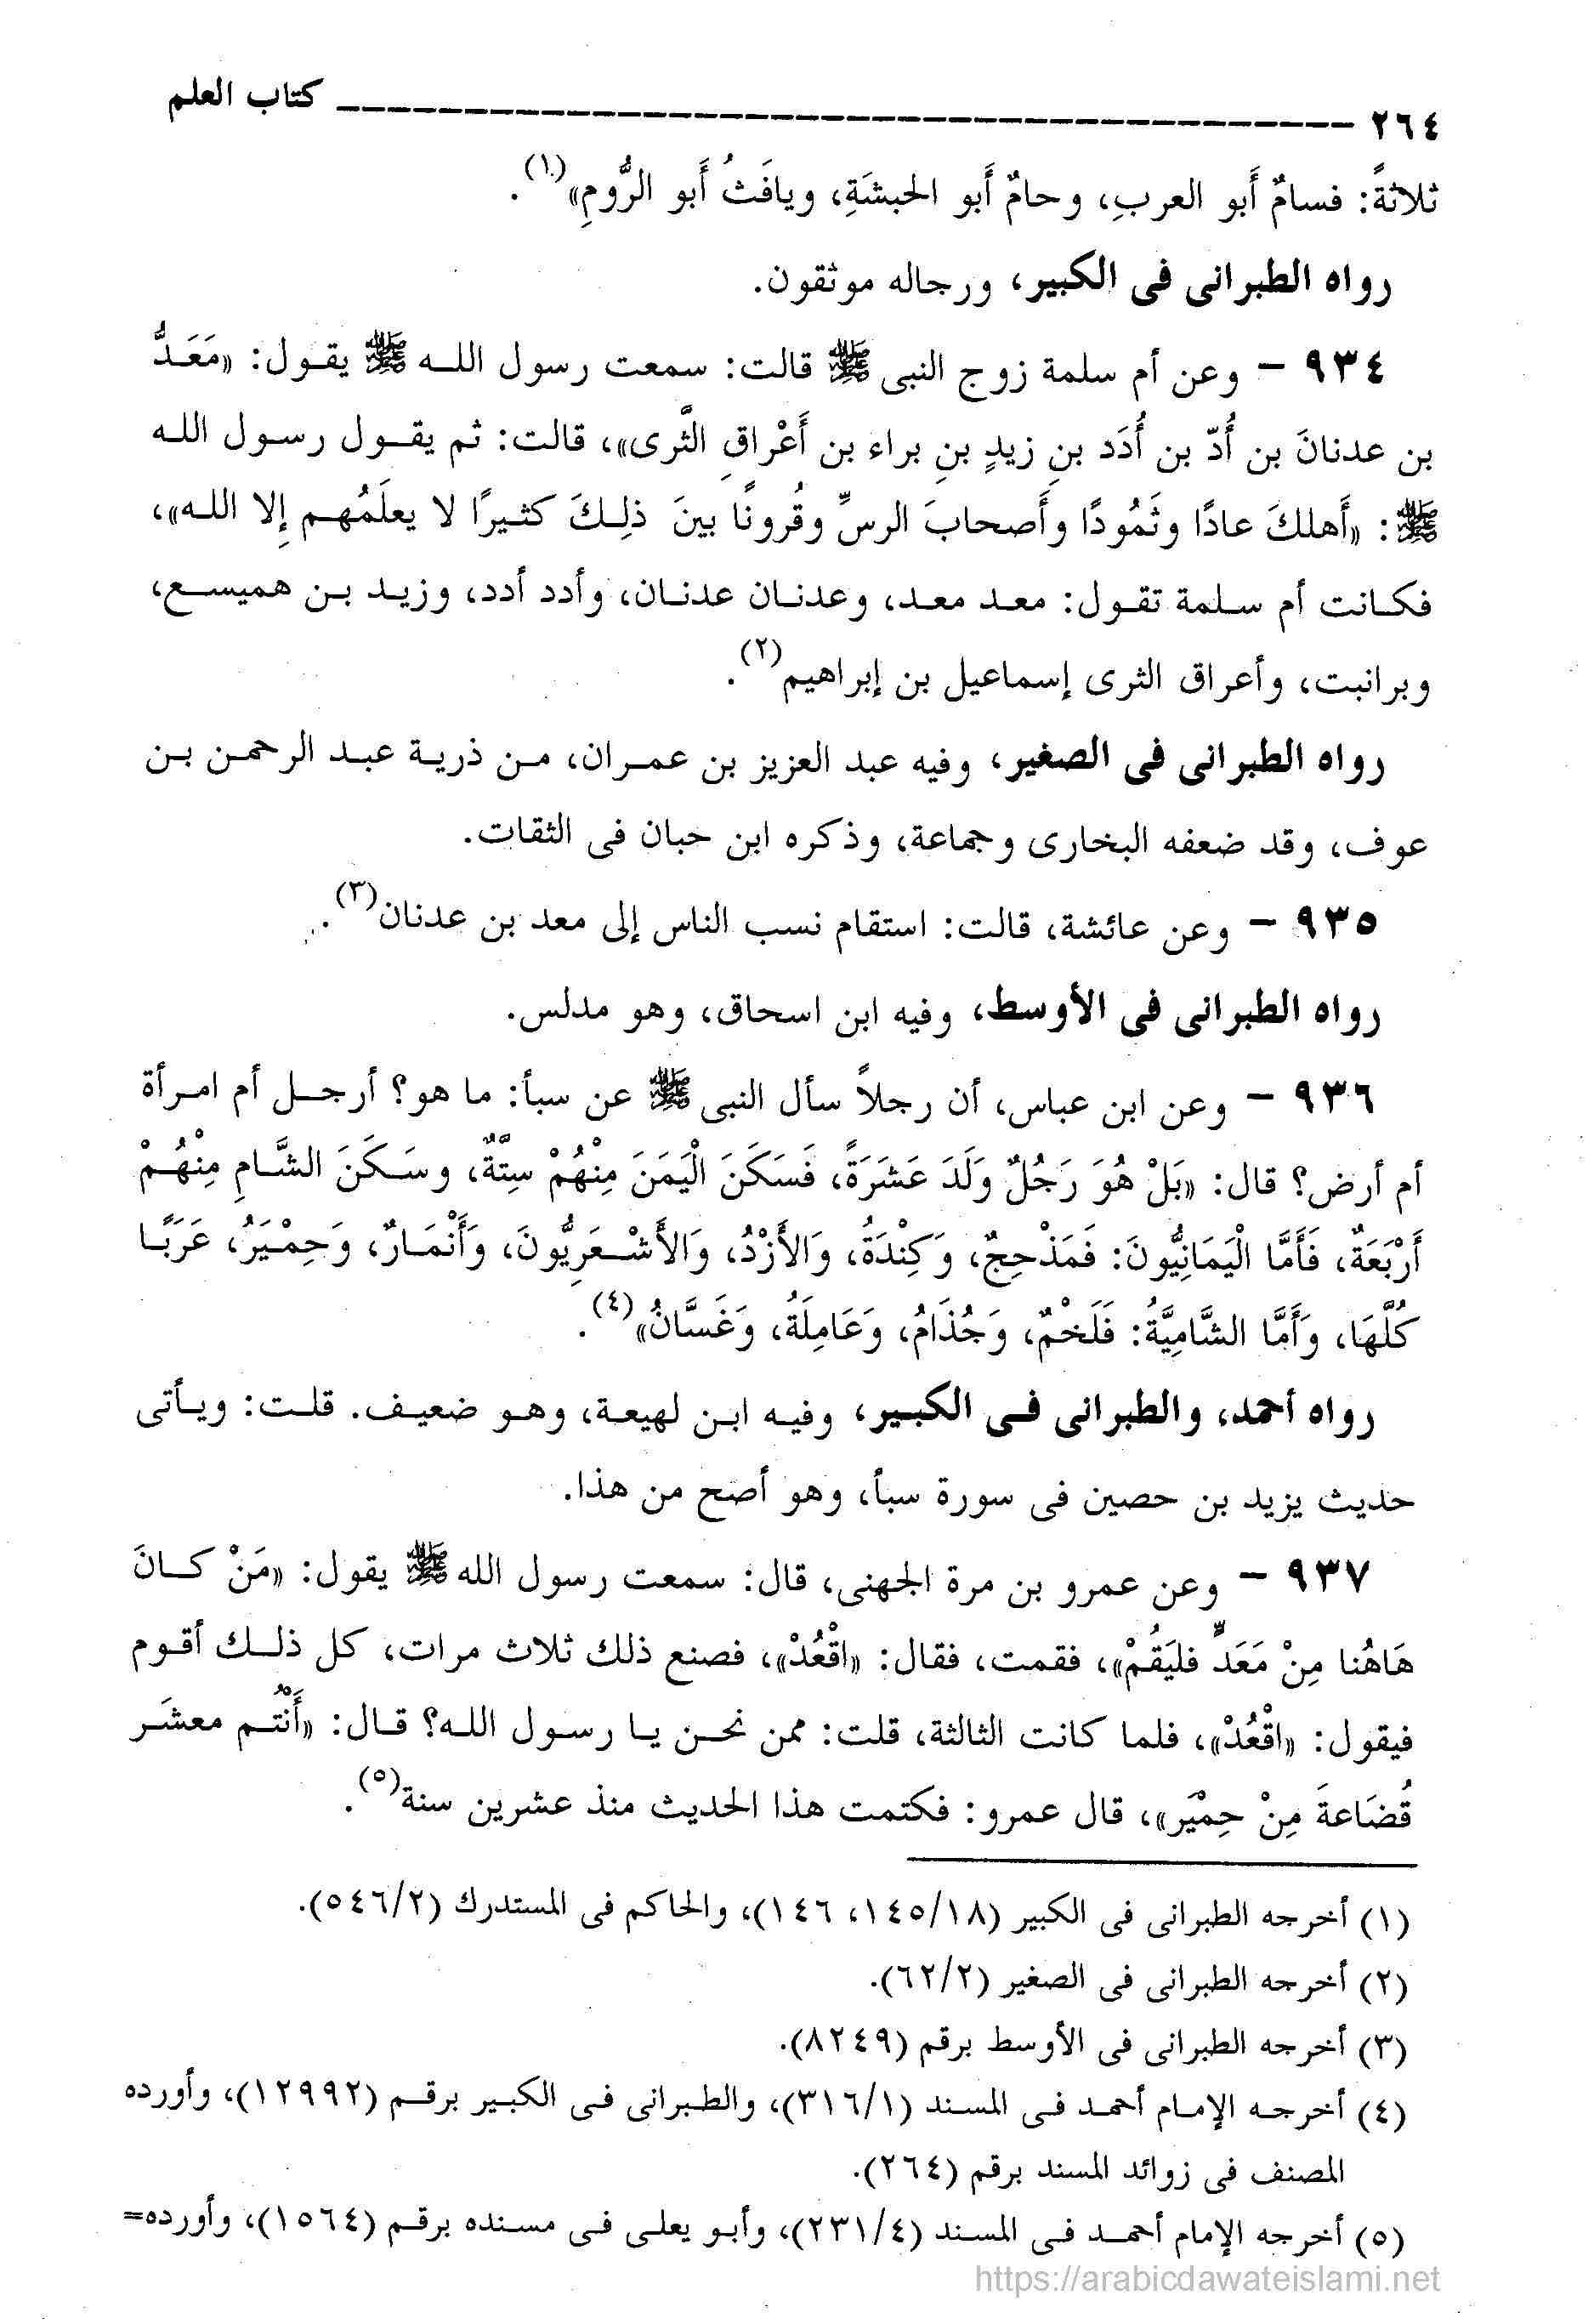 ٢٦٤ ــــــــــــــــــــــــــــــــــــــــــــــــــــــــــــ كتاب العلم
ثلاثةً: فسامٌ أَبو العربِ، وحامٌ أَبو الحبشَةِ، ويافَثُ أَبو الرُّومِ»(١).
رواه الطبرانى فى الكبير، ورجاله موثقون.
٩٣٤ – وعن أم سلمة زوج النبى ﷺ قالت: سمعت رسول اللـه ﷺ يقـول: «مَعَـدُّ
بن عدنانَ بن أُدّ بن أُدَد بنِ زيدٍ بنِ براء بن أَعْراقِ الثَّرى»، قالت: ثم يقـول رسـول اللـه
ﷺ: «أَهلكَ عادًا وثَمُودًا وأَصحابَ الرسِّ وقُرونًا بينَ ذلِـكَ كثـيرًا لا يعلَمُهـم إِلا اللـه»،
فكـانت أم سـلمة تقـول: معـد معـد، وعدنـان عدنـان، وأدد أدد، وزيـد بـن هميسـع،
وبرانبت، وأعراق الثرى إسماعيل بن إبراهيم(٢).
رواه الطبرانى فى الصغير، وفيه عبد العزيز بن عمـران، مـن ذريـة عبـد الرحمـن بـن
عوف، وقد ضعفه البخارى وجماعة، وذكره ابن حبان فى الثقات.
٩٣٥ – وعن عائشة، قالت: استقام نسب الناس إلى معد بن عدنان(٣).
رواه الطبرانى فى الأوسط، وفيه ابن اسحاق، وهو مدلس.
٩٣٦ – وعن ابن عباس، أن رجلاً سأل النبى ﷺ عن سبأ: ما هو؟ أرجـل أم امـرأة
أم أرض؟ قال: «بَلْ هُوَ رَجُلٌ وَلَدَ عَشَرَةً، فَسَكَنَ الْيَمَنَ مِنْهُمْ سِتَّةٌ، وسَـكَنَ الشَّـامِ مِنْهُـمْ
أَرْبَعَةٌ، فَأَمَّا الْيَمَانِيُّونَ: فَمَذْحِجٌ، وَكِنْدَةُ، وَالأَزْدُ، وَالأَشْـعَرِيُّونَ، وَأَنْمَـارٌ، وَحِمْـيَرُ، عَرَبًـا
كُلَّهَا، وَأَمَّا الشَّامِيَّةُ: فَلَخْمٌ، وَجُذَامُ، وَعَامِلَةُ، وَغَسَّانُ»(٤).
رواه أحمد، والطبرانى فـى الكبـير، وفيـه ابـن لهيعـة، وهـو ضعيـف. قلـت: ويـأتى
حديث يزيد بن حصين فى سورة سبأ، وهو أصح من هذا.
٩٣٧ – وعن عمرو بن مرة الجهنى، قال: سمعت رسول الله ﷺ يقول: «مَنْ كـانَ
هَاهُنا مِنْ مَعَدٍّ فليَقُمْ»، فقمت، فقال: «اقْعُدْ»، فصنع ذلك ثلاث مرات، كل ذلـك أقـوم
فيقول: «اقْعُدْ»، فلما كانت الثالثة، قلت: ممن نحـن يـا رسـول اللـه؟ قـال: «أَنْتُـم معشَـر
قُضَاعةَ مِنْ حِمْيَر»، قال عمرو: فكتمت هذا الحديث منذ عشرين سنة(٥).
(١) أخرجه الطبرانى فى الكبير (١٤٥/١٨، ١٤٦)، والحاكم فى المستدرك (٥٤٦/٢).
(٢) أخرجه الطبرانى فى الصغير (٦٢/٢).
(٣) أخرجه الطبرانى فى الأوسط برقم (٨٢٤٩).
(٤) أخرجـه الإمـام أحمـد فـى المسـند (٣١٦/١)، والطـبرانى فـى الكبـير برقـم (١٢٩٩٢)، وأورده
المصنف فى زوائد المسند برقم (٢٦٤).
(٥) أخرجه الإمام أحمـد فـى المسـند (٢٣١/٤)، وأبـو يعلـى فـى مسـنده برقـم (١٥٦٤)، وأورده=
https://arabicdawateislami.net